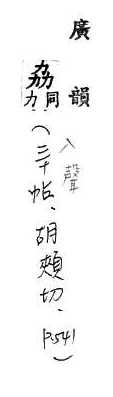 廣韻
入聲
(三十帖、胡頰切、P.541)